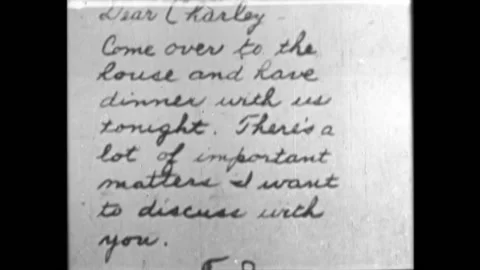 Dear Charley
Come over to the
house and have
dinner with us
tonight. There's a
lot of important
matters I want
to discuss with
you.